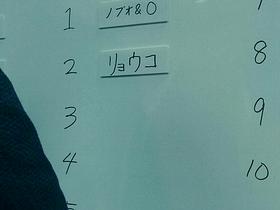 1 ノブオ&O
2 リョウコ
3
4
8
9
10